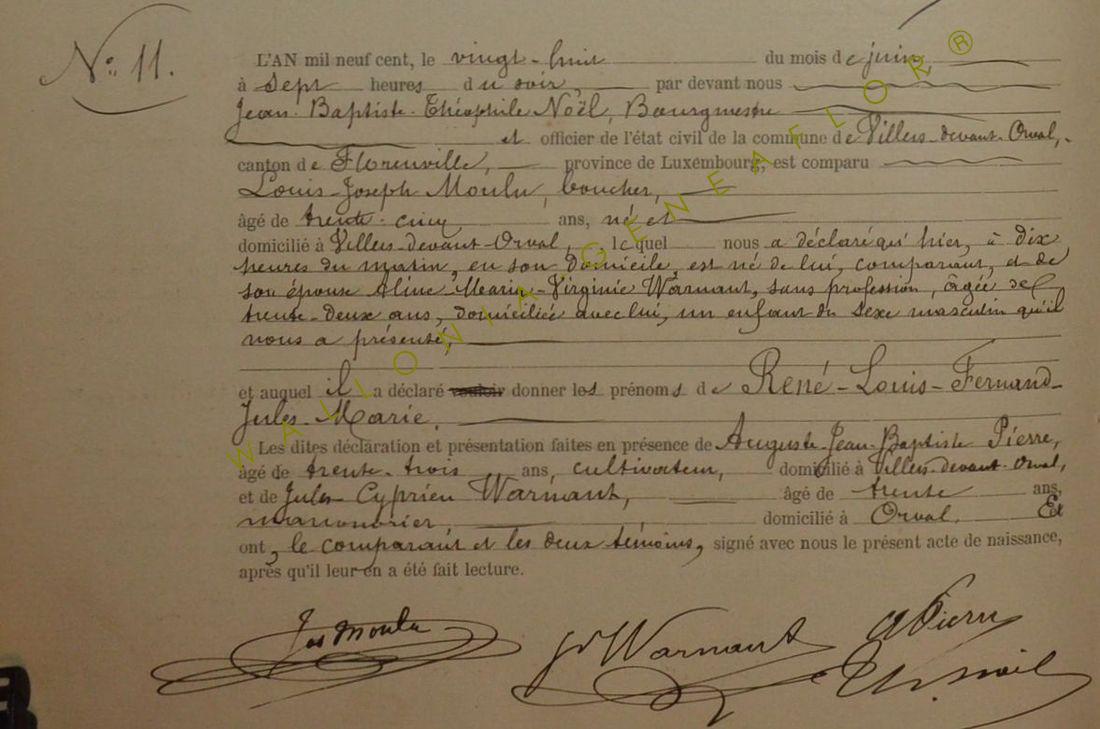 N° 11.
L'AN mil neuf cent, le vingt-huit du mois de juin
à sept heures du soir, par devant nous
Jean-Baptiste-Théophile Noël, Bourgmestre
et officier de l'état civil de la commune de Villers-devant-Orval,
canton de Florenville, province de Luxembourg, est comparu
Louis-Joseph Moulu, boucher,
âgé de trente-cinq ans, né et
domicilié à Villers-devant-Orval, lequel nous a déclaré qu'hier, à dix
heures du matin, en son domicile, est né de lui, comparant, et de
son épouse Aline-Marie-Virginie Warnant, sans profession, âgée de
trente-deux ans, domiciliée avec lui, un enfant du sexe masculin qu'il
nous a présenté,
et auquel il a déclaré vouloir donner les prénoms de René-Louis-Fernand-
Jules-Marie.
Les dites déclaration et présentation faites en présence de Auguste-Jean-Baptiste Pierre,
âgé de trente-trois ans, cultivateur, domicilié à Villers-devant-Orval,
et de Jules-Cyprien Warnant, âgé de trente ans,
manouvrier, domicilié à Orval. Et
ont, le comparant et les deux témoins, signé avec nous le présent acte de naissance,
après qu'il leur en a été fait lecture.
Jos Moulu
J Warnant
A Pierre
Th. Noël
WALLONIA GENEAFLOR ®